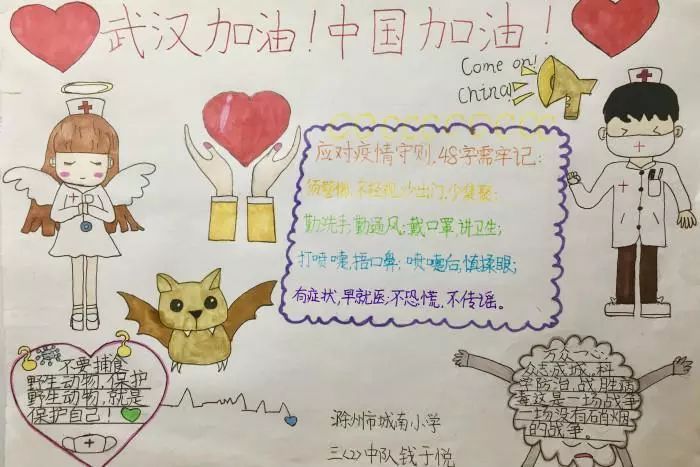 武汉加油!中国加油!
Come on!
China!
应对疫情守则,48字需牢记:
须警惕,不轻视;少出门,少集聚;
勤洗手,勤通风;戴口罩,讲卫生;
打喷嚏,捂口鼻;喷嚏后,慎揉眼;
有症状,早就医;不恐慌,不传谣。
不要捕食
野生动物,保护
野生动物,就是
保护自己!
万众一心
众志成城,科
学防治,战胜病
毒这是一场战争
一场没有硝烟
的战争。
滁州市城南小学
三(2)中队钱于悦